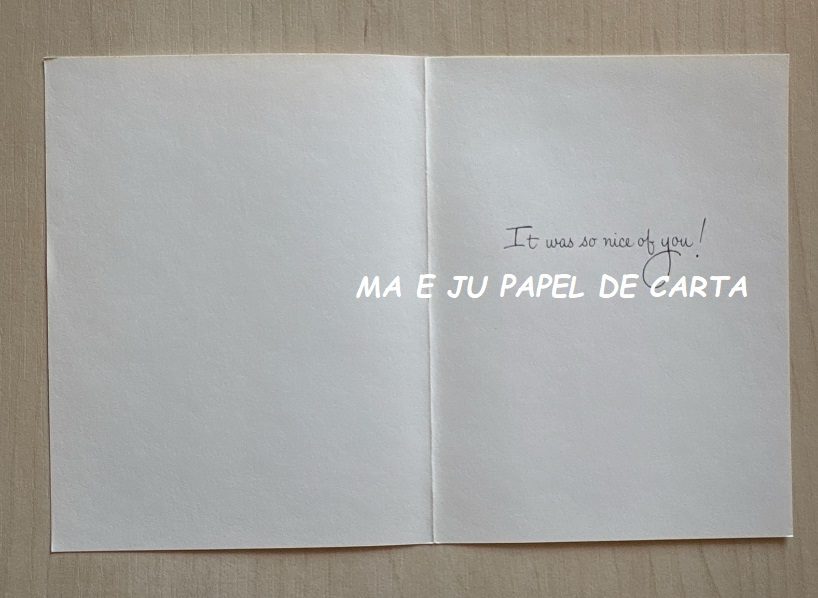 It was so nice of you!
MA E JU PAPEL DE CARTA